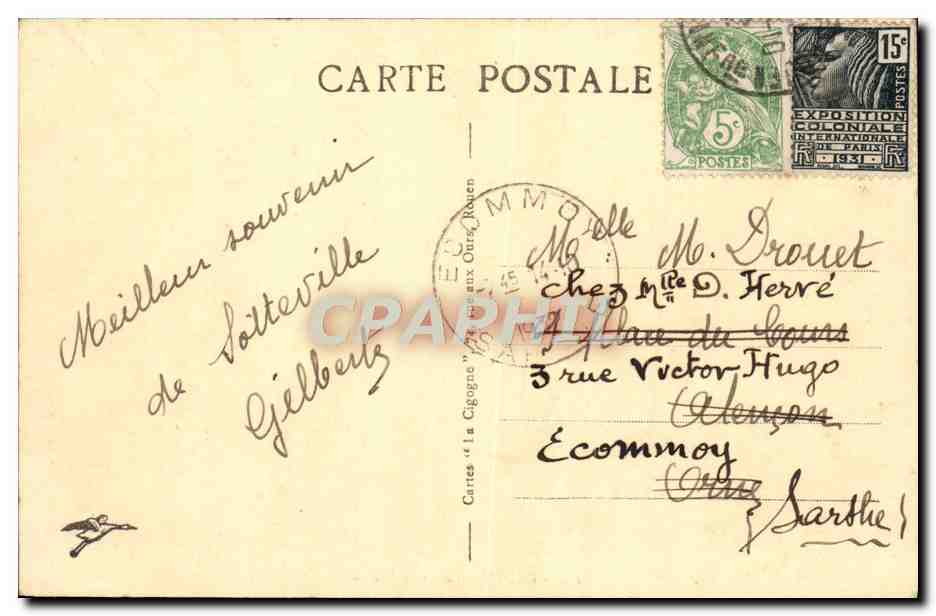 CARTE POSTALE
5c
POSTES
15c
POSTES
EXPOSITION
COLONIALE
INTERNATIONALE
DE PARIS
1931
Meilleur souvenir
de Sotteville
Gilberte
Cartes "La Cigogne", 74 rue aux Ours, Rouen
ECOMMOY
CPAPHIL
Melle M. Drouet
chez Mlle D. Hervé
Place du Cours
3 rue Victor Hugo
Alençon
Écommoy
Orne
Sarthe